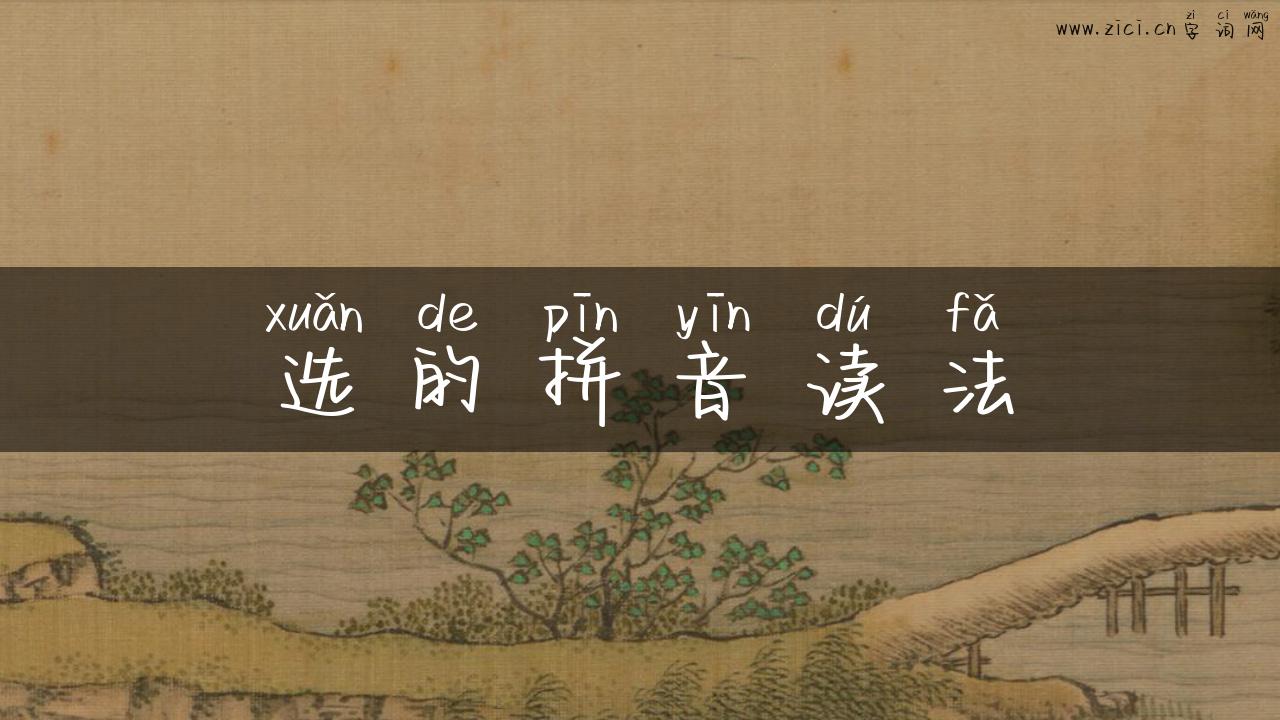 zì cí wǎng
www.zici.cn 字 词 网
xuǎn de pīn yīn dú fǎ
选 的 拼 音 读 法